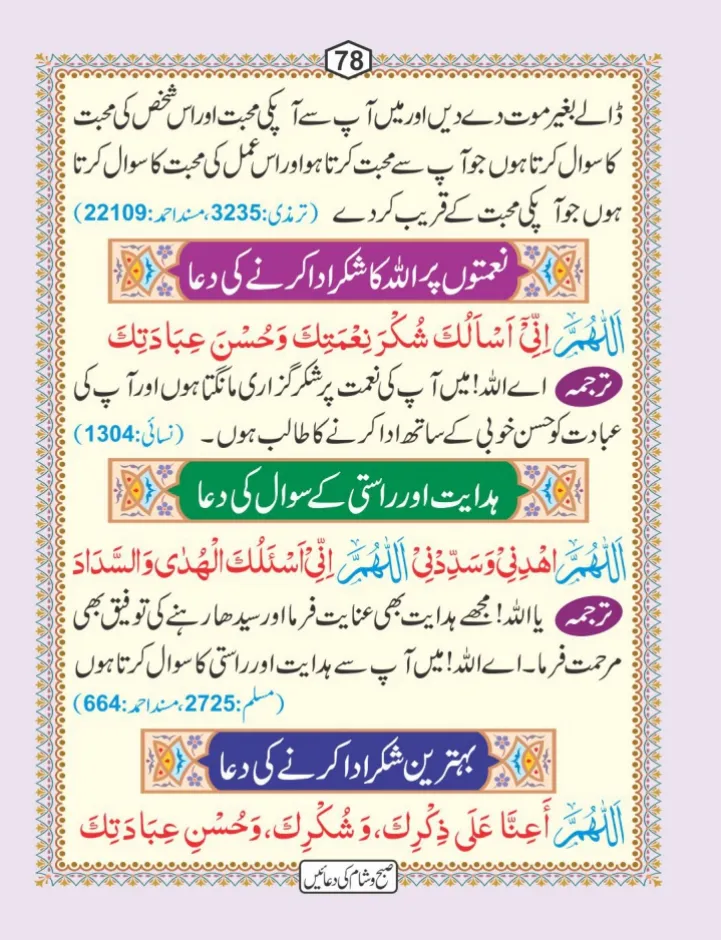 78
ڈالے بغیر موت دے دیں اور میں آپ سے آپکی محبت اور اس شخص کی محبت
کا سوال کرتا ہوں جو آپ سے محبت کرتا ہو اور اس عمل کی محبت کا سوال کرتا
ہوں جو آپکی محبت کے قریب کردے (ترمذی:3235، مسند احمد:22109)
نعمتوں پر اللہ کا شکر ادا کرنے کی دعا
اَللّٰهُمَّ اِنِّىْٓ اَسْاَلُكَ شُكْرَ نِعْمَتِكَ وَحُسْنَ عِبَادَتِكَ
ترجمہ اے اللہ! میں آپ کی نعمت پر شکر گزاری مانگتا ہوں اور آپ کی
عبادت کو حسن خوبی کے ساتھ ادا کرنے کا طالب ہوں۔ (نسائی:1304)
ہدایت اور راستی کے سوال کی دعا
اَللّٰهُمَّ اهْدِنِىْ وَسَدِّدْنِىْ اَللّٰهُمَّ اِنِّىْ اَسْئَلُكَ الْهُدٰى وَالسَّدَادَ
ترجمہ یا اللہ! مجھے ہدایت بھی عنایت فرما اور سیدھا رہنے کی توفیق بھی
مرحمت فرما۔ اے اللہ! میں آپ سے ہدایت اور راستی کا سوال کرتا ہوں
(مسلم:2725، مسند احمد:664)
بہترین شکر ادا کرنے کی دعا
اَللّٰهُمَّ أَعِنَّا عَلَى ذِكْرِكَ، وَشُكْرِكَ، وَحُسْنِ عِبَادَتِكَ
صبح و شام کی دعائیں